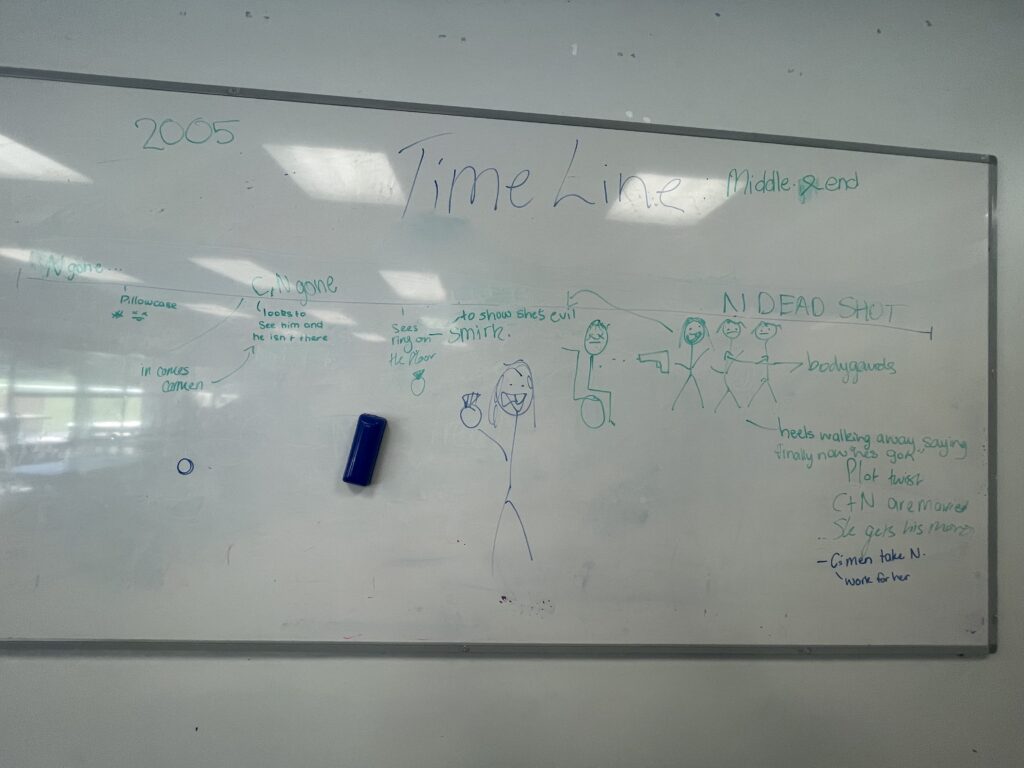 2005
Time Line
Middle & end
N gone...
Pillowcase
C, N gone
looks to
see him and
he isn't there
in comes
Carmen
Sees
ring on
the floor
to show she's evil
smirk.
N DEAD SHOT
bodygards
heels walking away saying
finally now hes gon
Plot twist
C+N are
She gets his
- C: men take N.
work for her